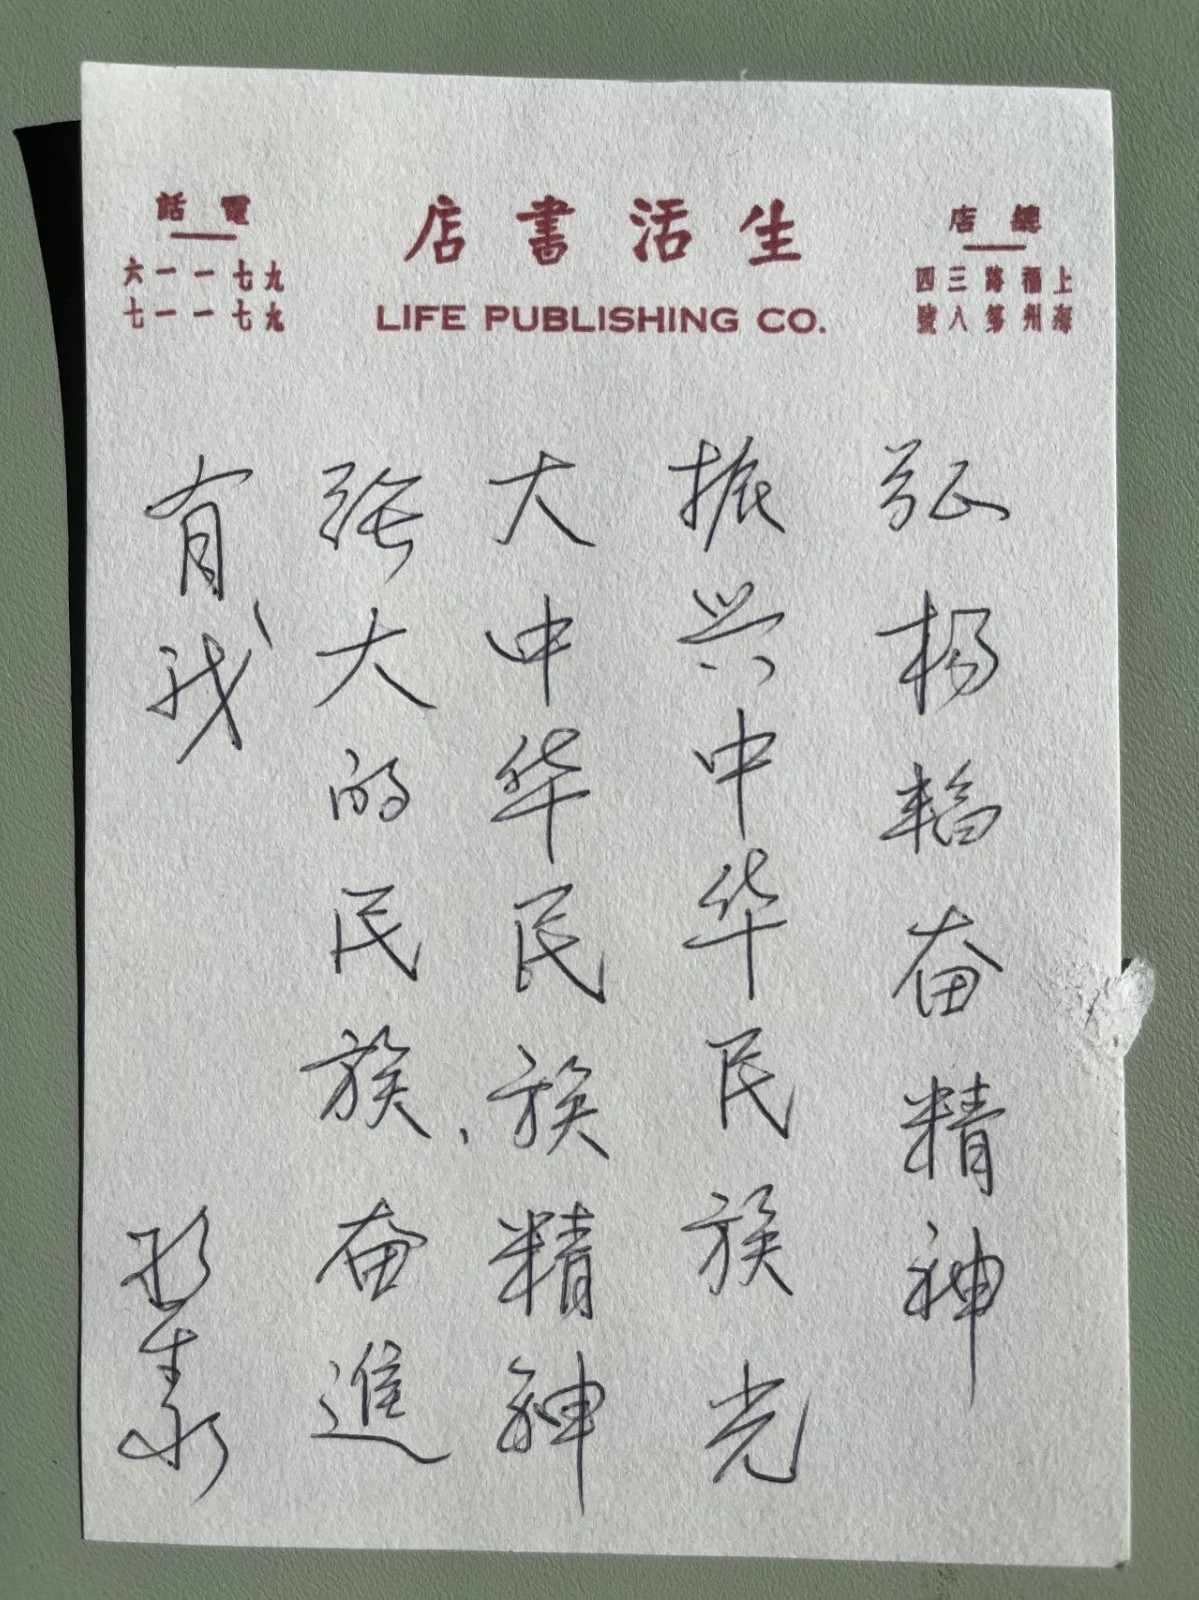 總店
上海福州路第三八四號
生活書店
LIFE PUBLISHING CO.
電話
九七一一六
九七一一七
弘扬韬奋精神
振兴中华民族光
大中华民族精神、
强大的民族奋進
有我